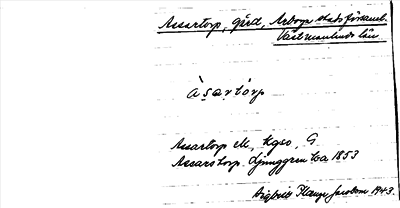 Assartorp, gård, Arboga stadsförsaml.
Västmanlands län
àsartórp
Assartorp EK, Kgso, G
Assarstorp Ljunggren ca 1853
Jacobson 1943.